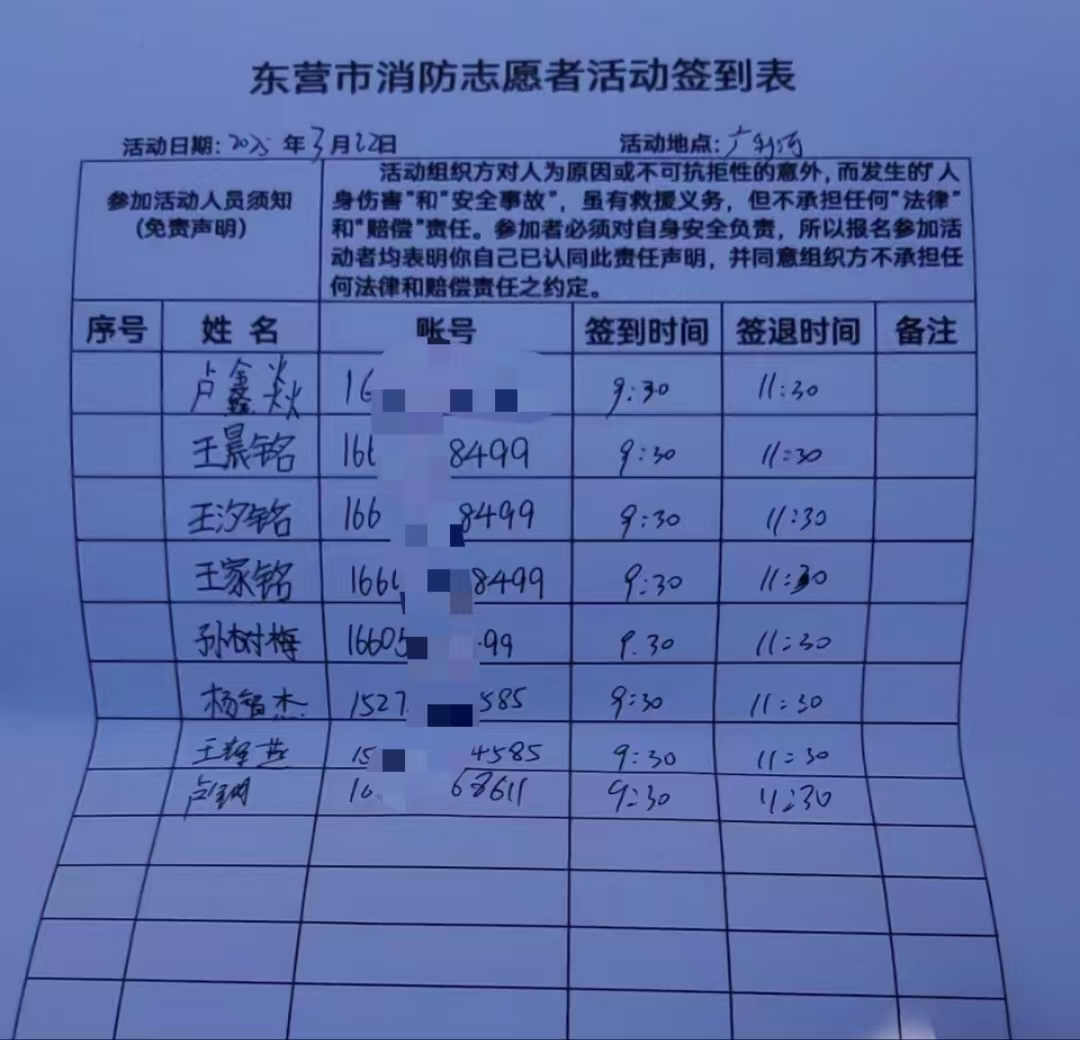 东营市消防志愿者活动签到表
活动日期：2025年3月22日 活动地点：广利河
参加活动人员须知
（免责声明）
活动组织方对人为原因或不可抗拒性的意外，而发生的"人
身伤害"和"安全事故"，虽有救援义务，但不承担任何"法律"
和"赔偿"责任。参加者必须对自身安全负责，所以报名参加活
动者均表明你自己已认同此责任声明，并同意组织方不承担任
何法律和赔偿责任之约定。
序号 姓名 账号 签到时间 签退时间 备注
卢鑫焱 16 9:30 11:30
王晨铭 166 8499 9:30 11:30
王汐铭 166 8499 9:30 11:30
王家铭 166 8499 9:30 11:30
孙树梅 16605 99 9.30 11:30
杨智杰 1527 585 9:30 11:30
王 燕 15 4585 9:30 11:30
卢 68611 9:30 11:30